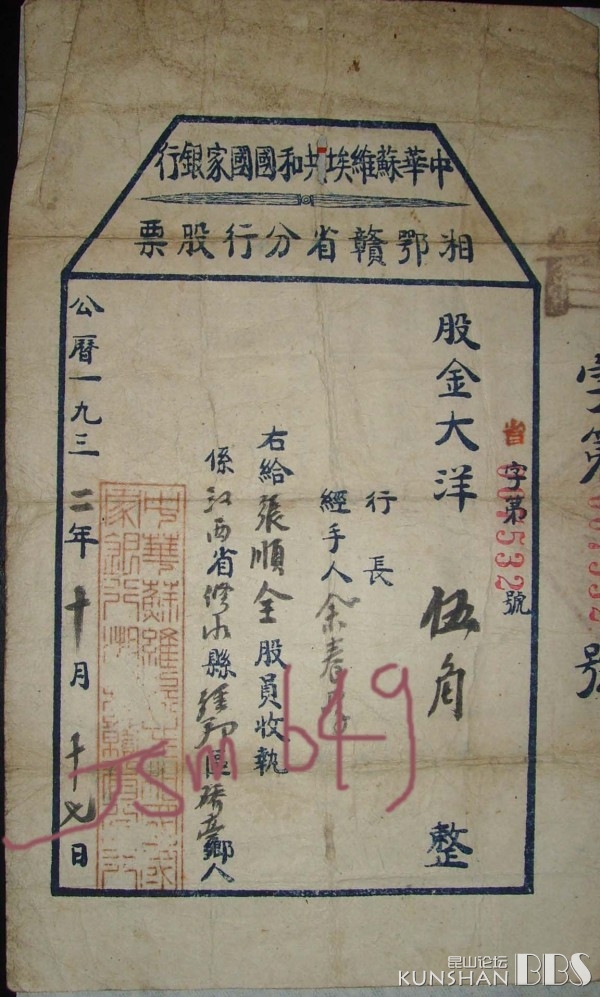 中華蘇維埃共和國國家銀行
湘鄂贛省分行股票
省字第007532號
股金大洋伍角整
行長
經手人余春
右給張順全股員收執
係江西省修水縣 區 鄉人
公曆一九三二年十月十七日
字第007532號
中華蘇維埃共和國
家銀行湘 贛省分行
Jsmb49
昆山论坛
KUNSHAN BBS